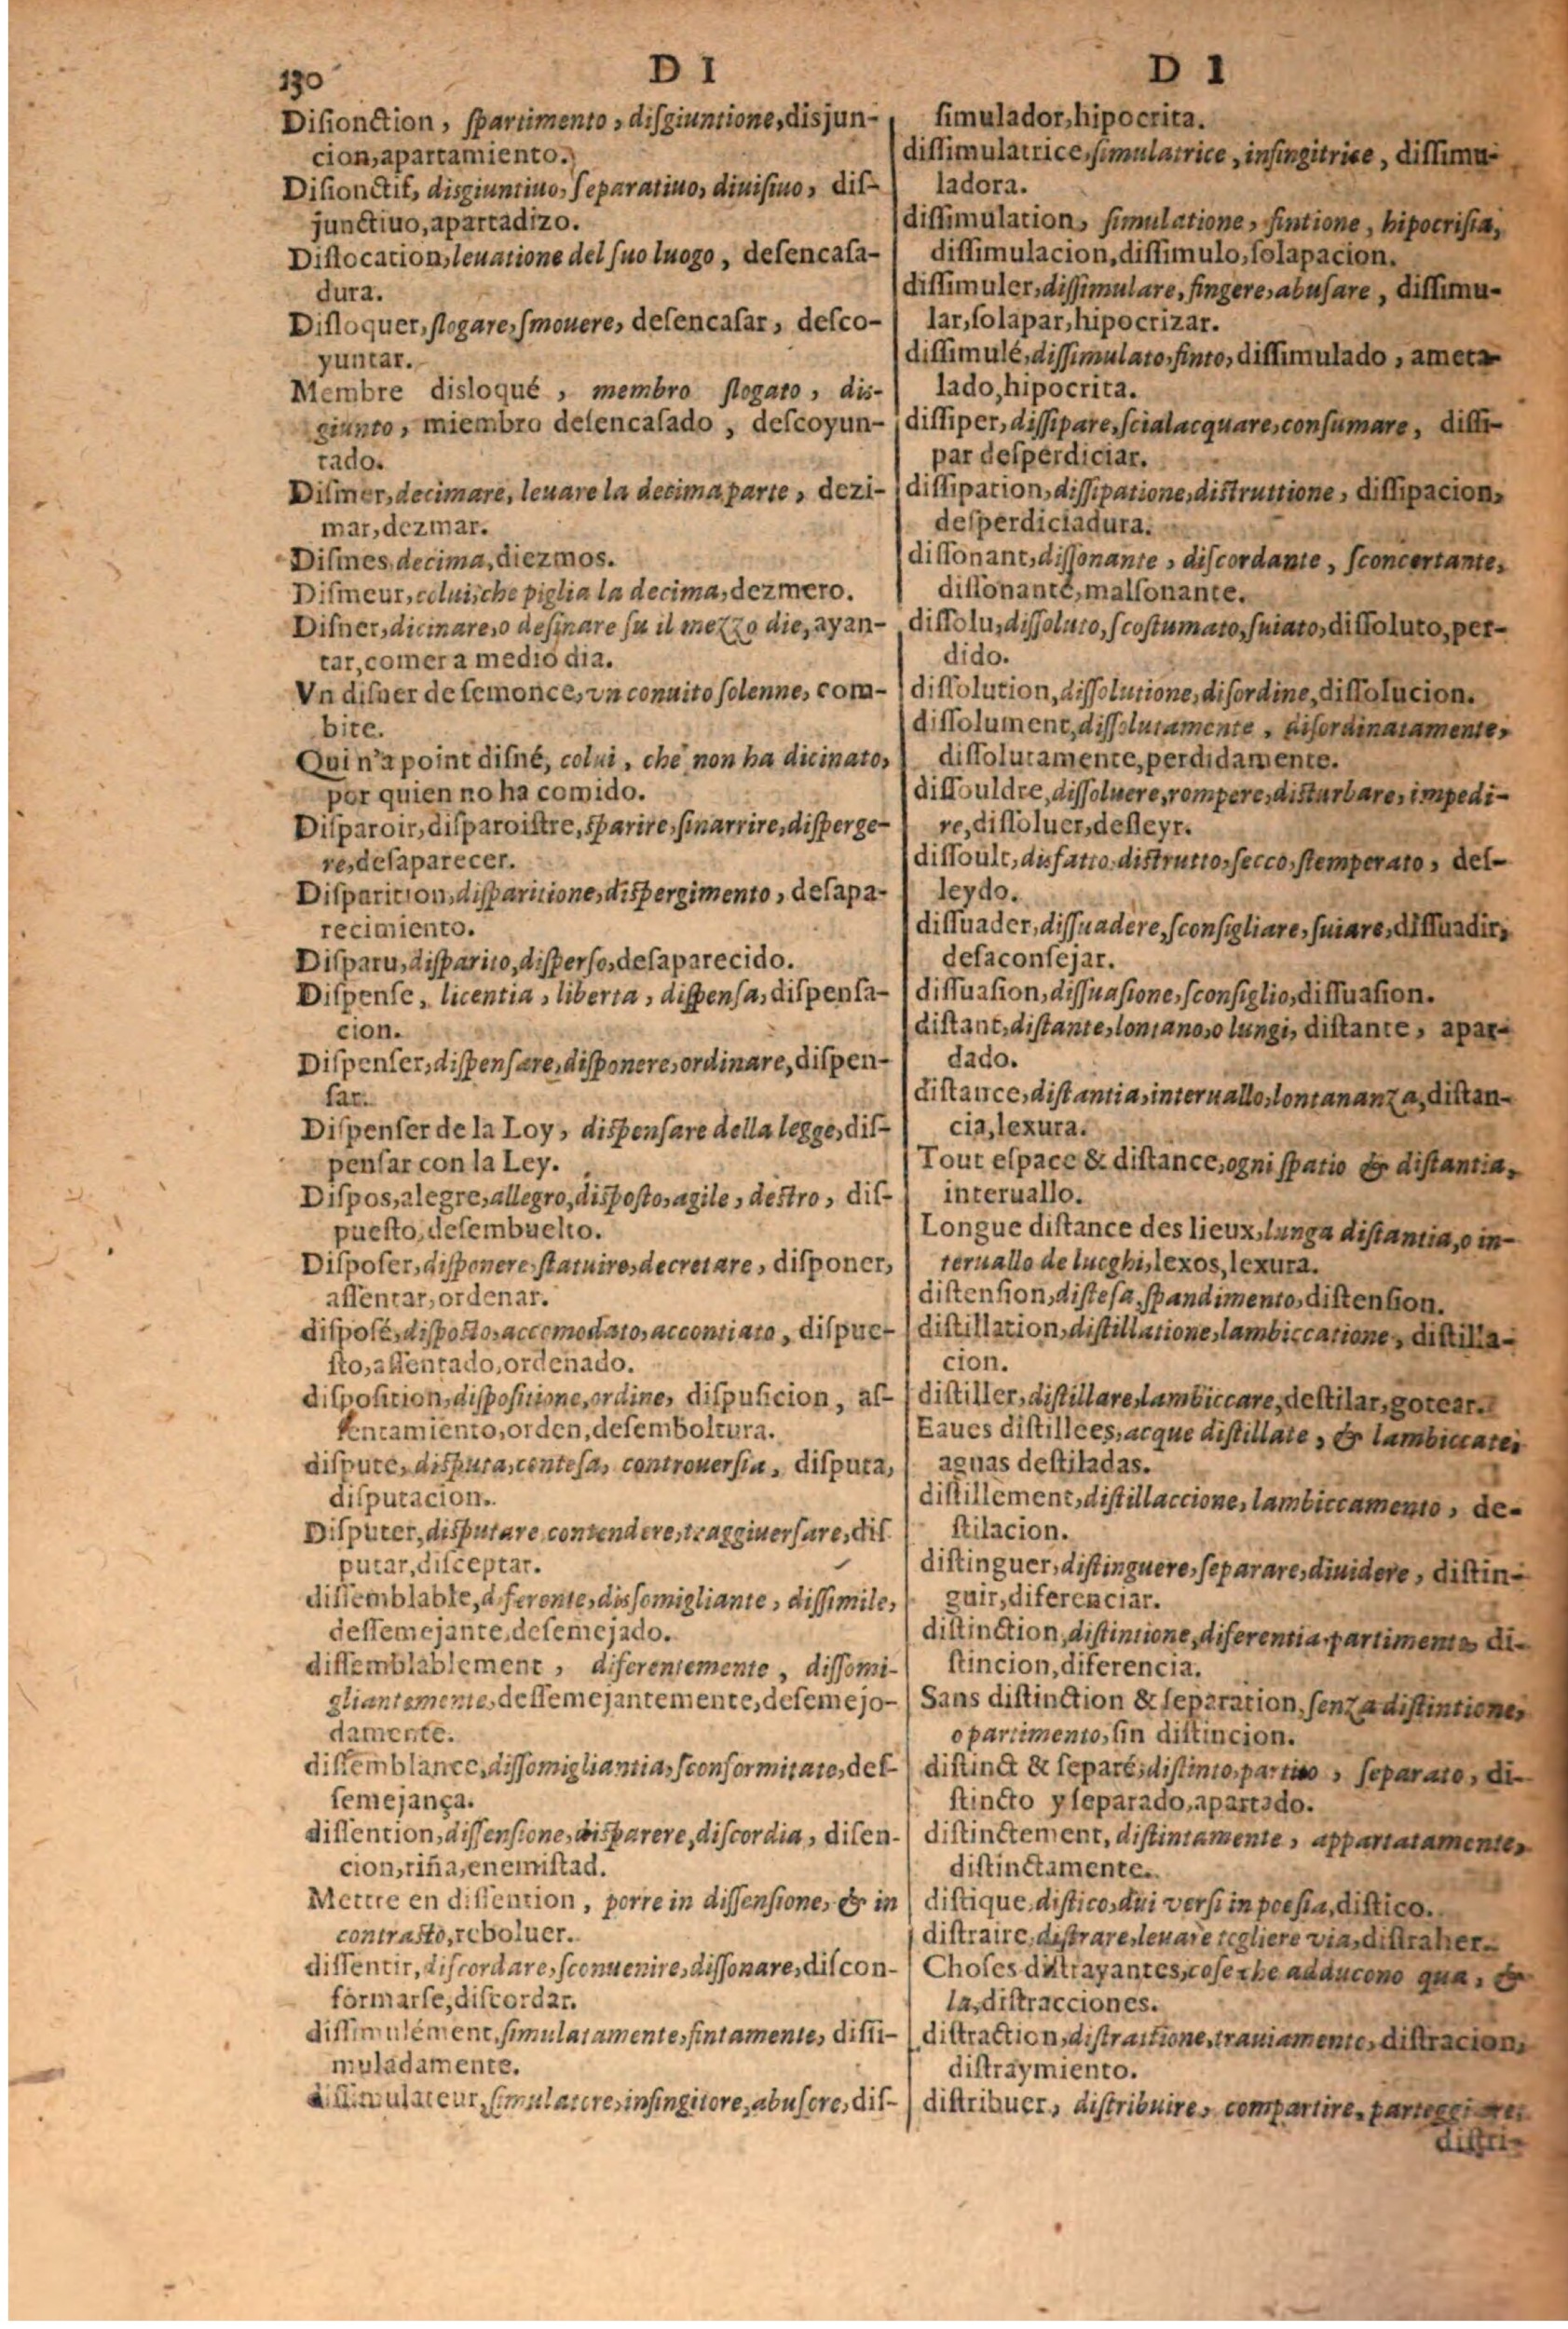 130
D I
D I
Disionction, spartimento, disgiuntione, disjun-
cion, apartamiento.
Disionctif, disgiuntiuo, separatiuo, diuisiuo, dis-
junctiuo, apartadizo.
Dislocation, leuatione del suo luogo, desencasa-
dura.
Disloquer, slogare, smouere, desencasar, desco-
yuntar.
Membre disloqué, membro slogato, dis-
giunto, miembro desencasado, descoyun-
tado.
Dismer, decimare, leuare la decima parte, dezi-
mar, dezmar.
Dismes, decima, diezmos.
Dismeur, colui, che piglia la decima, dezmero.
Disner, dicinare, o desinare su il mezzo die, ayan-
tar, comer a medio dia.
Vn disner de semonce, vn conuito solenne, com-
bite.
Qui n'a point disné, colui, che non ha dicinato,
por quien no ha comido.
Disparoir, disparoistre, sparire, sinarrire, disperge-
re, desaparecer.
Disparition, disparitione, dispergimento, desapa-
recimiento.
Disparu, disparito, disperso, desaparecido.
Dispense, licentia, liberta, dispensa, dispensa-
cion.
Dispenser, dispensare, disponere, ordinare, dispen-
sar.
Dispenser de la Loy, dispensare della legge, dis-
pensar con la Ley.
Dispos, alegre, allegro, disposto, agile, destro, dis-
puesto, desembuelto.
Disposer, disponere, statuire, decretare, disponer,
assentar, ordenar.
disposé, disposto, accomodato, acconciato, dispue-
sto, assentado, ordenado.
disposition, dispositione, ordine, dispusicion, as-
sentamiento, orden, desemboltura.
dispute, disputa, contesa, controuersia, disputa,
disputacion.
Disputer, disputare, contendere, traggiuersare, dis
putar, disceptar.
dissemblable, diferente, dissomigliante, dissimile,
dessemejante, desemejado.
dissemblablement, diferentemente, dissomi-
gliantemente, dessemejantemente, desemejo-
damente.
dissemblance, dissomigliantia, sconformitate, des-
semejança.
dissention, dissensione, disparere, discordia, disen-
cion, riña, enemistad.
Mettre en dissention, porre in dissensione, & in
contrasto, reboluer.
dissentir, discordare, sconuenire, dissonare, discon-
formarse, discordar.
dissimulément, simulatamente, fintamente, dissi-
muladamente.
dissimulateur, simulatore, infingitore, abusore, dis-
simulador, hipocrita.
dissimulatrice, simulatrice, infingitrice, dissimu-
ladora.
dissimulation, simulatione, fintione, hipocrisia,
dissimulacion, dissimulo, solapacion.
dissimuler, dissimulare, fingere, abusare, dissimu-
lar, solapar, hipocrizar.
dissimulé, dissimulato, finto, dissimulado, ameta-
lado, hipocrita.
dissiper, dissipare, scialacquare, consumare, dissi-
par desperdiciar.
dissipation, dissipatione, distruttione, dissipacion,
desperdiciadura.
dissonant, dissonante, discordante, sconcertante,
dissonante, malsonante.
dissolu, dissoluto, scostumato, suiato, dissoluto, per-
dido.
dissolution, dissolutione, disordine, dissolucion.
dissolument, dissolutamente, disordinatamente,
dissolutamente, perdidamente.
dissouldre, dissoluere, rompere, disturbare, impedi-
re, dissoluer, desleyr.
dissoult, disfatto, distrutto, secco, stemperato, des-
leydo.
dissuader, dissuadere, sconsigliare, suiare, dissuadir,
desaconsejar.
dissuasion, dissuasione, sconsiglio, dissuasion.
distant, distante, lontano, o lungi, distante, apar-
dado.
distance, distantia, interuallo, lontananza, distan-
cia, lexura.
Tout espace & distance, ogni spatio & distantia,
interuallo.
Longue distance des lieux, lunga distantia, o in-
teruallo de lueghi, lexos, lexura.
distension, distesa, spandimento, distension.
distillation, distillatione, lambiccatione, distilla-
cion.
distiller, distillare, lambiccare, destilar, gotear.
Eaues distillees, acque distillate, & lambiccate,
aguas destiladas.
distillement, distillaccione, lambiccamento, de-
stilacion.
distinguer, distinguere, separare, diuidere, distin-
guir, diferenciar.
distinction, distintione, diferentia, partimento, di-
stincion, diferencia.
Sans distinction & separation, senza distintione,
o partimento, sin distincion.
distinct & separé, distinto, partito, separato, di-
stincto y separado, apartado.
distinctement, distintamente, appartatamente,
distinctamente.
distique, distico, dui versi in poesia, distico.
distraire, distrare, leuare, togliere via, distraher.
Choses distrayantes, cose che adducono qua, &
la, distracciones.
distraction, distrattione, trauiamento, distracion,
distraymiento.
distribuer, distribuire, compartire, parteggiare,
distri-